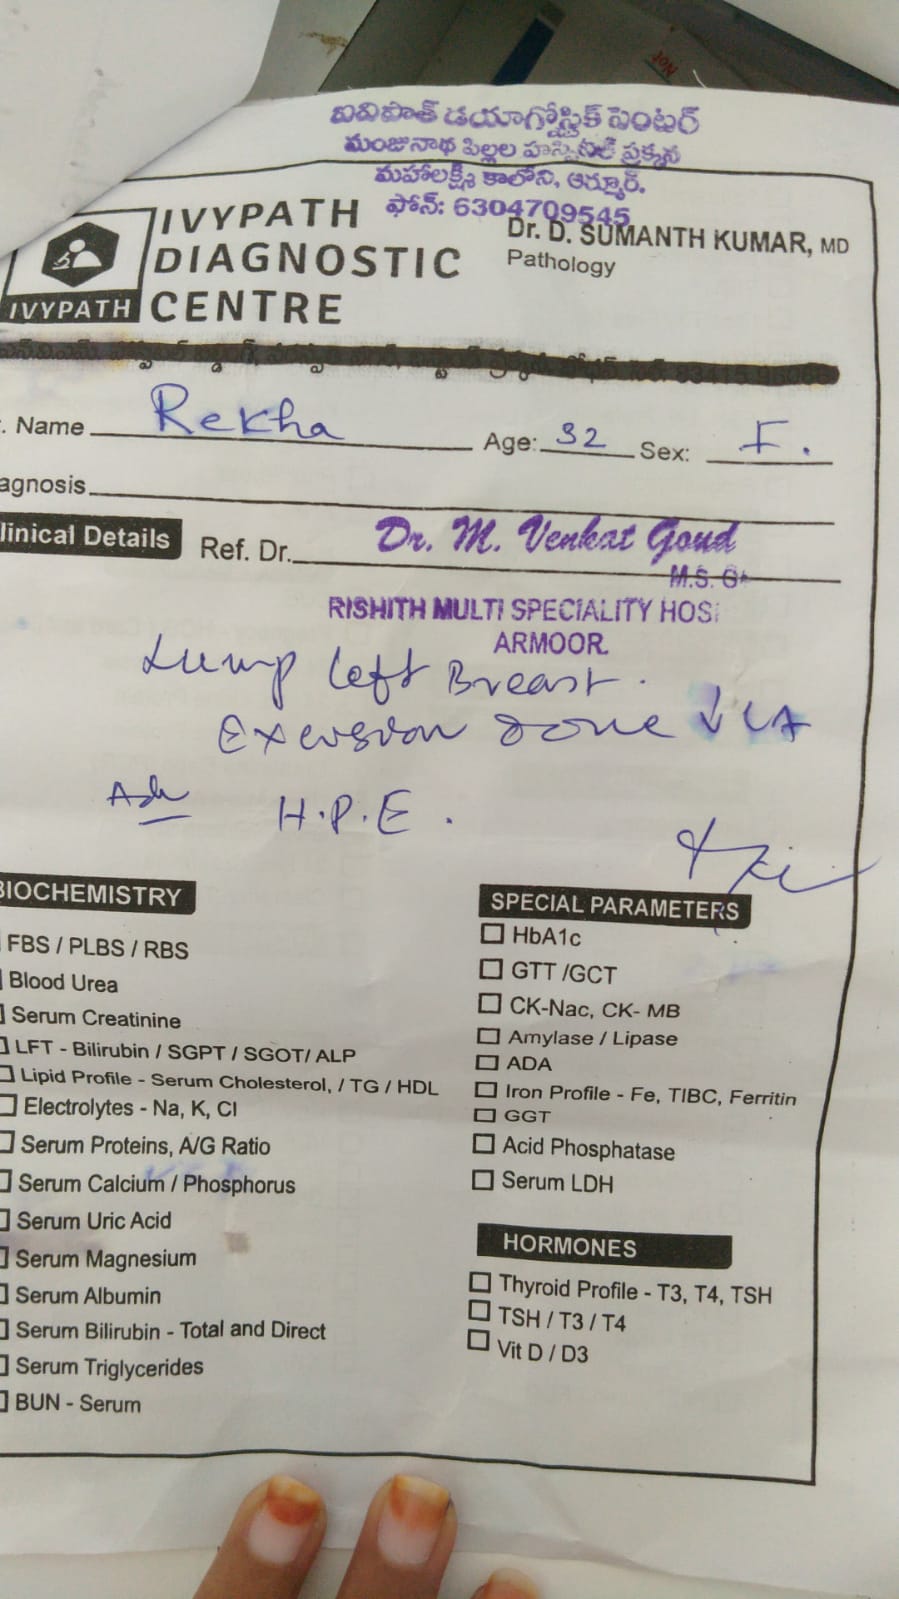 Not
ఐవిపాత్ డయాగ్నోస్టిక్ సెంటర్
మంజునాథ పిల్లల హాస్పిటల్ ప్రక్కన
మహాలక్ష్మీ కాలోని, ఆర్మూర్.
ఫోన్: 6304709545
IVYPATH
DIAGNOSTIC
CENTRE
IVYPATH
Dr. D. SUMANTH KUMAR, MD
Pathology
. Name Rekha Age: 32 Sex: F.
agnosis
linical Details Ref. Dr. Dr. M. Venkat Goud
M.S.
RISHITH MULTI SPECIALITY HOS
ARMOOR.
Lump left Breast.
Excersion done ↓ LA
Adv H.P.E.
BIOCHEMISTRY
FBS / PLBS / RBS
Blood Urea
Serum Creatinine
LFT - Bilirubin / SGPT / SGOT/ ALP
Lipid Profile - Serum Cholesterol, / TG / HDL
Electrolytes - Na, K, Cl
Serum Proteins, A/G Ratio
Serum Calcium / Phosphorus
Serum Uric Acid
Serum Magnesium
Serum Albumin
Serum Bilirubin - Total and Direct
Serum Triglycerides
BUN - Serum
SPECIAL PARAMETERS
HbA1c
GTT /GCT
CK-Nac, CK- MB
Amylase / Lipase
ADA
Iron Profile - Fe, TIBC, Ferritin
GGT
Acid Phosphatase
Serum LDH
HORMONES
Thyroid Profile - T3, T4, TSH
TSH / T3 / T4
Vit D / D3